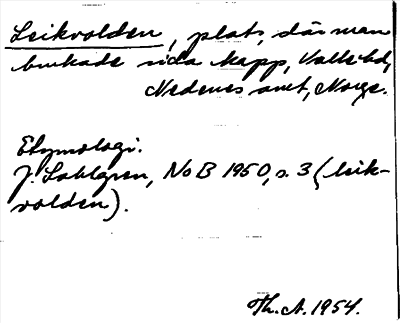 Leikvolden, plats, där man
brukade rida kapp, Valle hd,
Nedenes amt, Norge.
Etymologi.
J. Sahlgren, NoB 1950, s. 3 (leik-
volden).
Th. A. 1954.